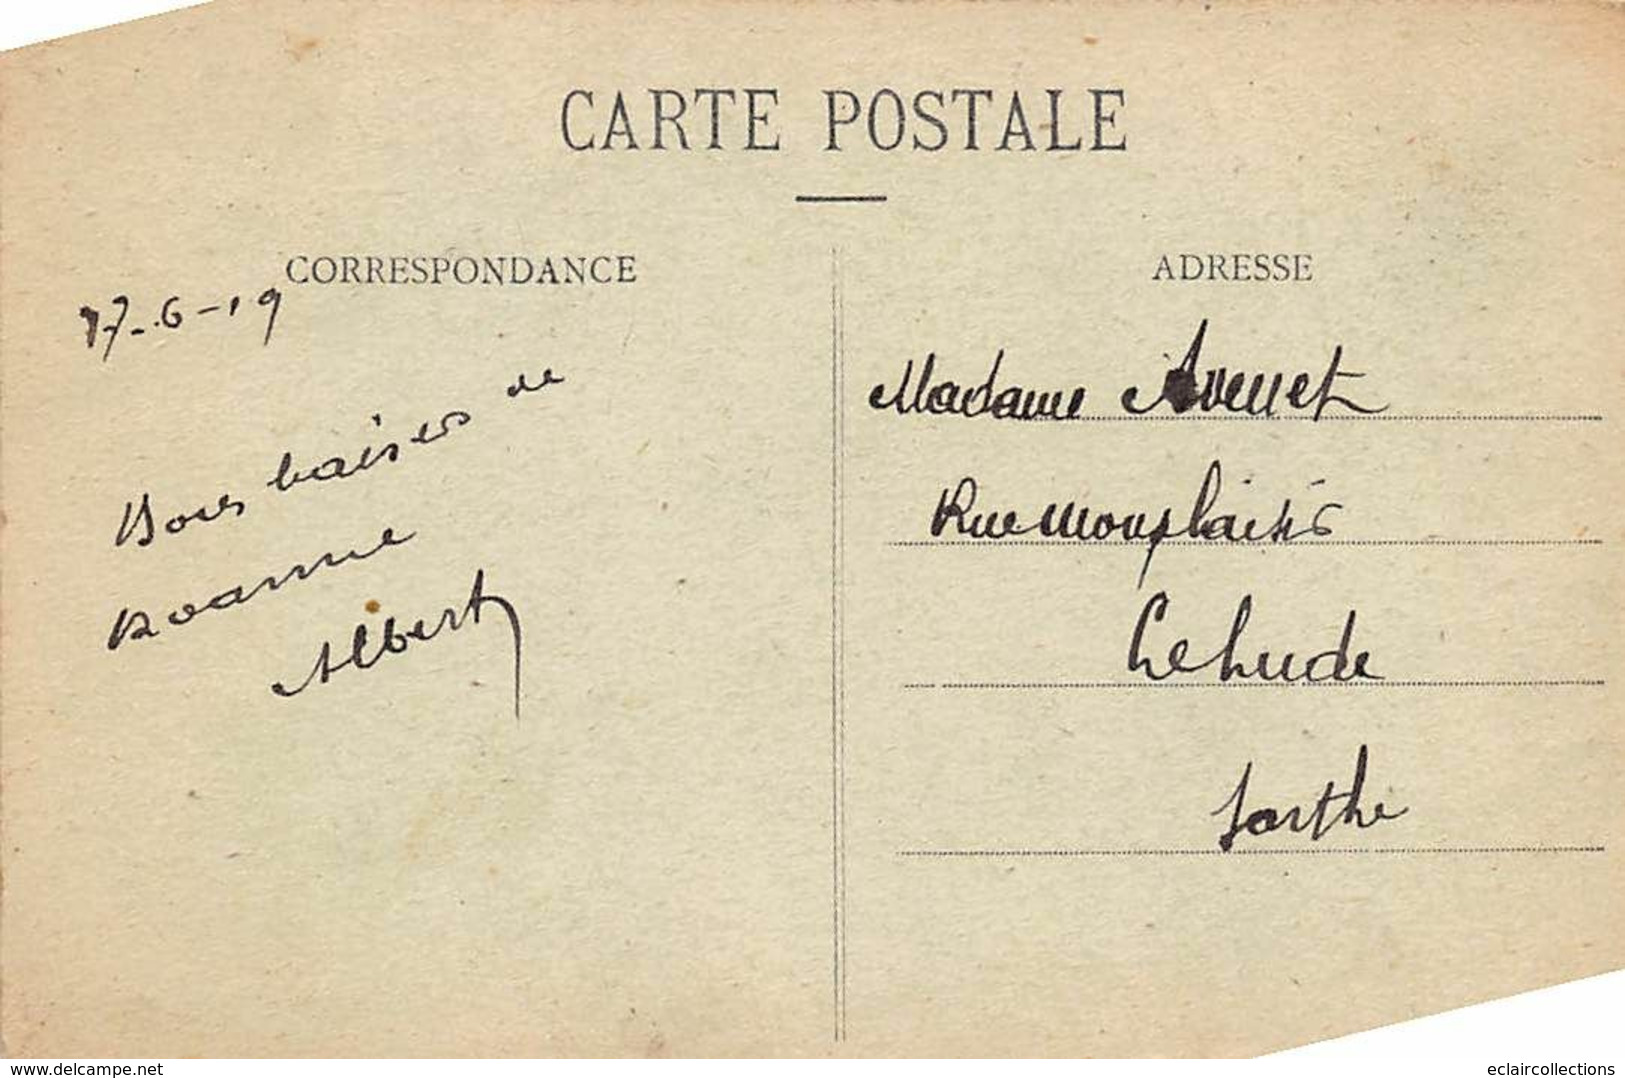 CARTE POSTALE
CORRESPONDANCE
17-6-19
Bons baisers de
Roanne
Albert
ADRESSE
Madame Avenet
Rue Monplaisir
Le Lude
Sarthe
www.delcampe.net
eclaircollections